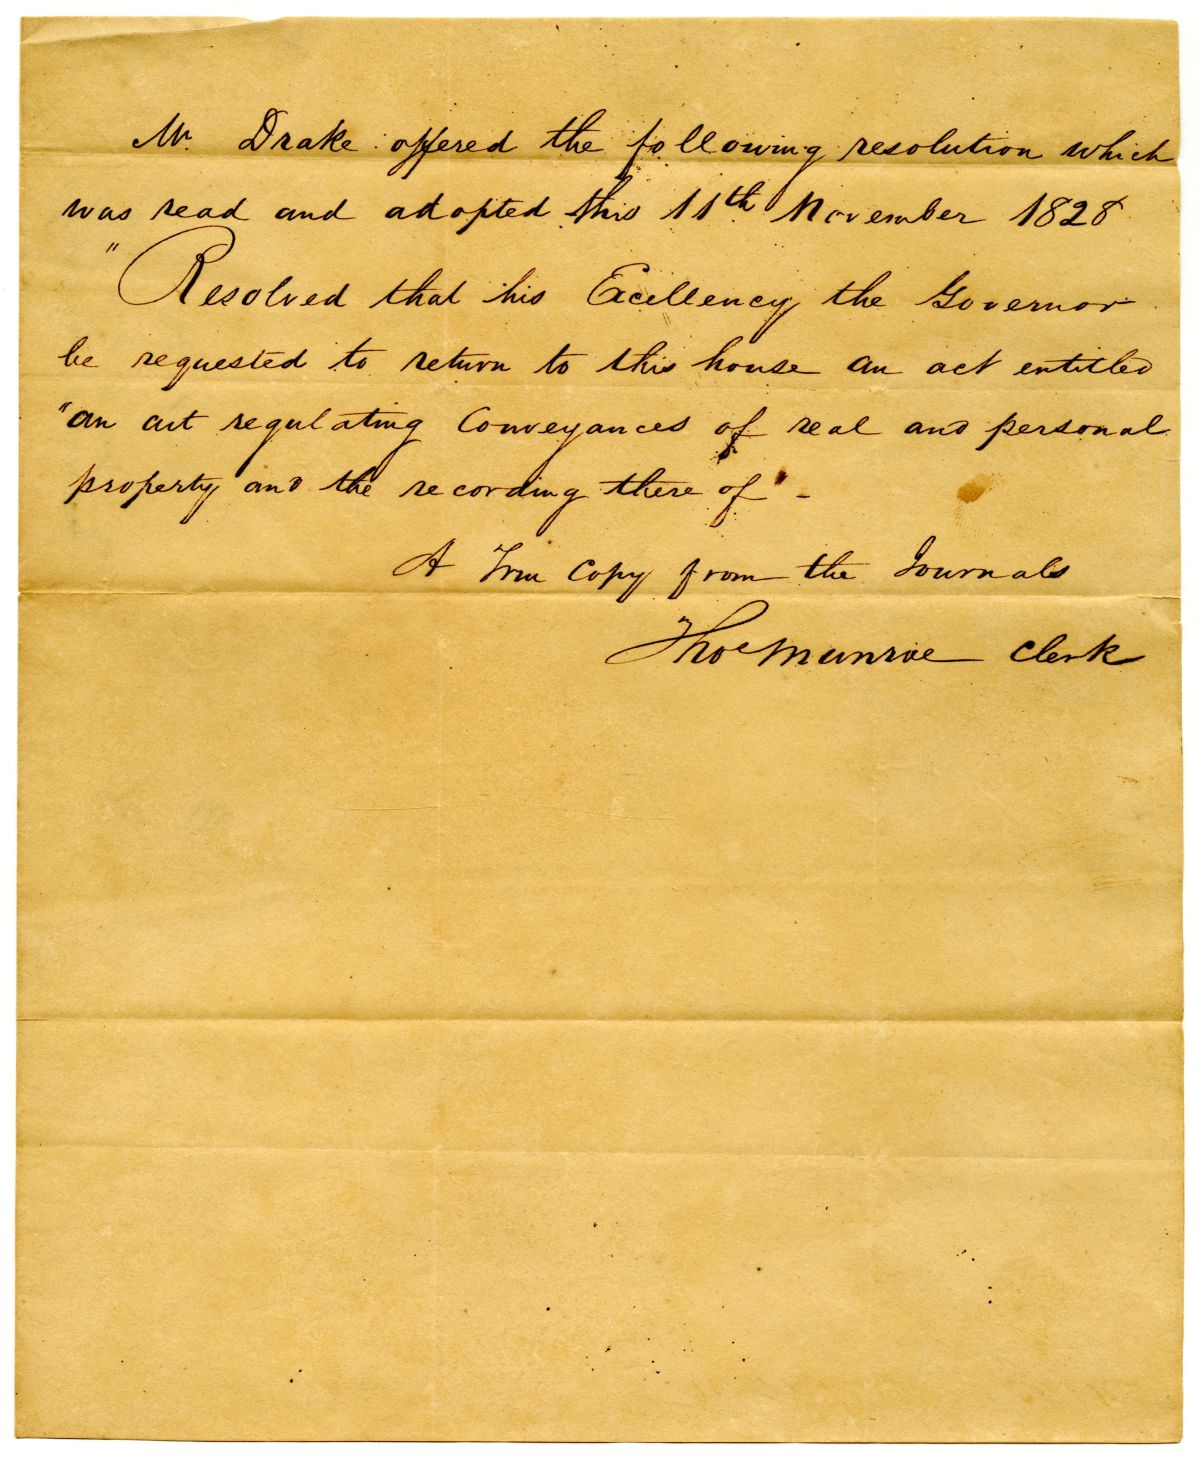 Mr. Drake offered the following resolution which
was read and adopted this 11th November 1828
"Resolved that his Excellency the Governor
be requested to return to this house an act entitled
"an act regulating Conveyances of real and personal
property and the recording there of" -
A True Copy from the Journals
Thos Munroe Clerk